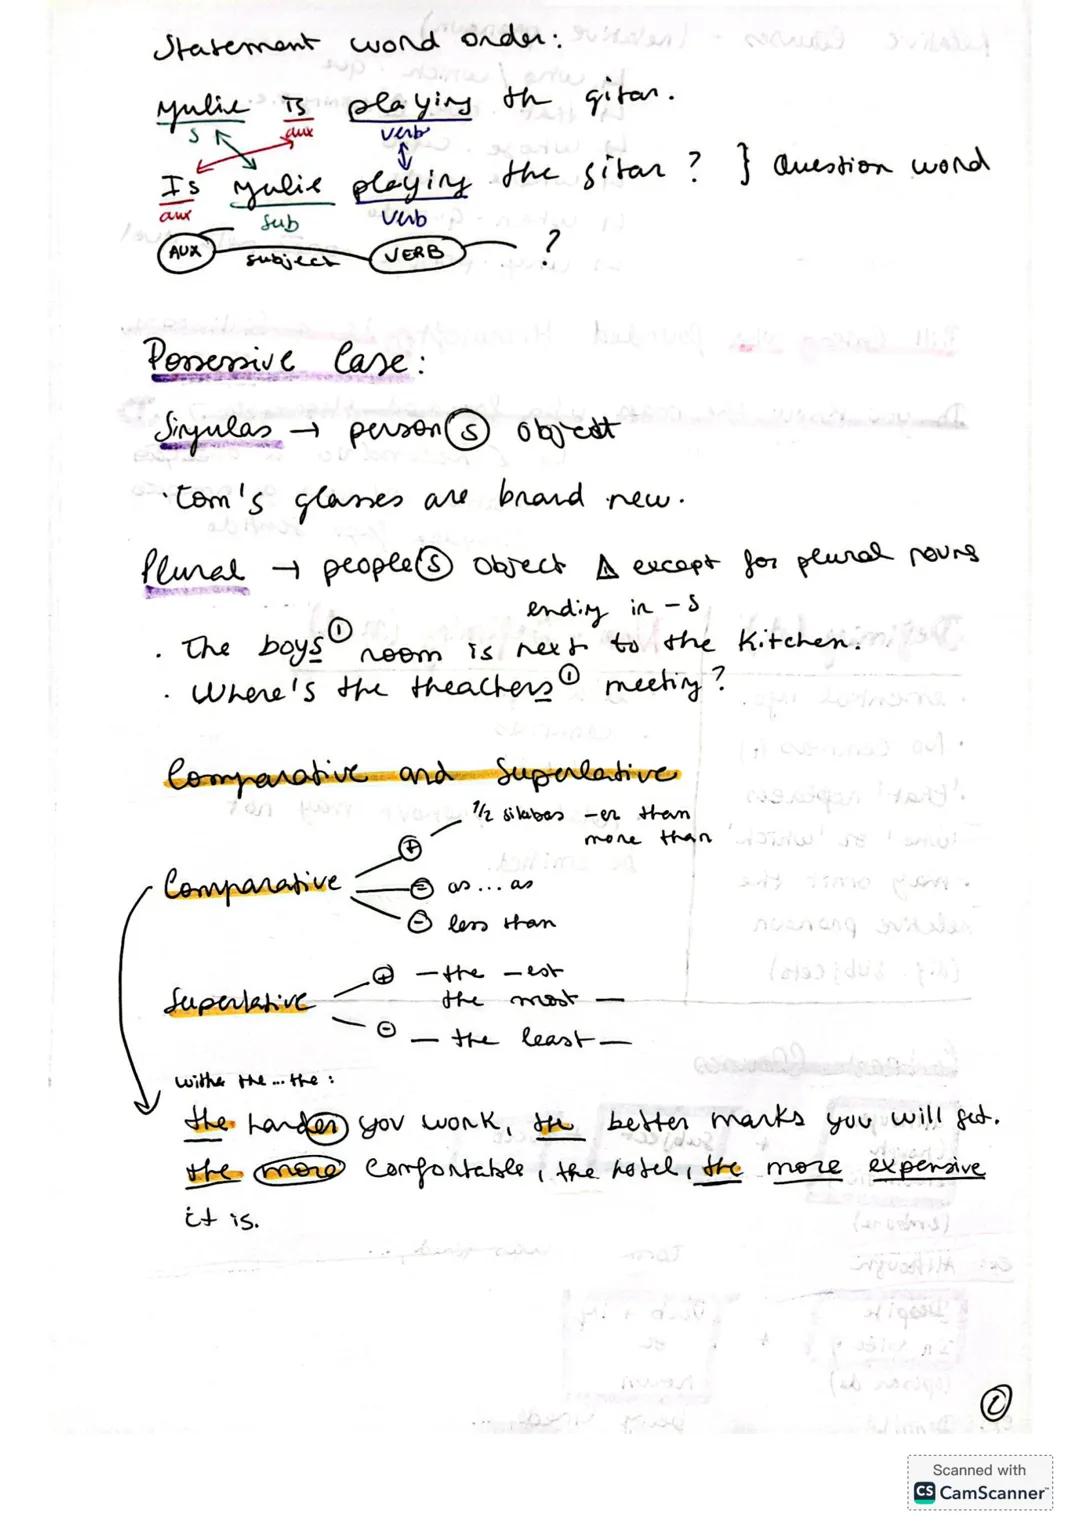 Statement word order:
Yulie is playing th gitar.
s aux verb
Is Yulie playing the gitar ? } Question word
aux sub verb
AUX subject VERB ?
Possessive Case:
Singular → person(s) object
·Tom's glasses are brand new.
Plural → people(s) object ⚠ except for plural nouns
ending in -s
· The boys' room is next to the kitchen.
· Where's the theachers' meeting?
Comparative and Superlative
1/2 silabas -er than
more than
+
Comparative = as... as
- less than
Superlative + - the -est
the most —
- — the least —
withe the ... the :
the harder you work, the better marks you will get.
the more comfortable, the hotel, the more expensive
it is.
Scanned with
CS CamScanner